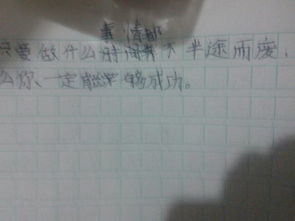 事情都
只要做什么时间都不半途而废，
么你一定能够成功。